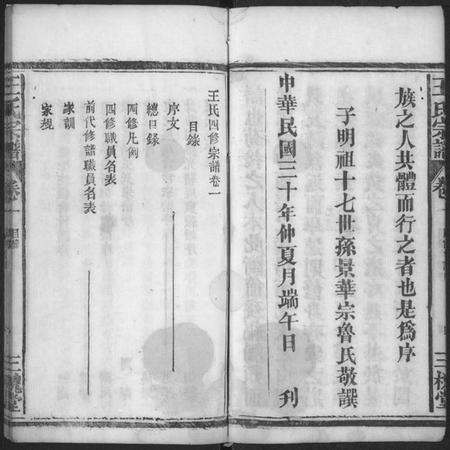 王氏宗譜
卷一
三槐堂
族之人共體而行之者也是爲序
子明祖十七世孫景華宗魯氏敬譔
中華民國三十年仲夏月端午日 刋
王氏四修宗譜卷一
目錄
序文
總目錄
四修凡例
四修職員名表
前代修譜職員名表
家訓
家規
王氏宗譜
卷一
目錄
三槐堂